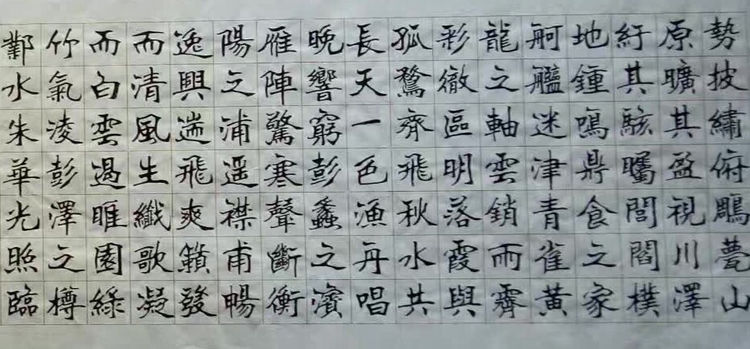 勢披繡俯鵰甍山
原曠其盈視川澤
紆其駭矚閭閻樸
地鍾鳴鼎食之家
舸艦迷津青雀黃
龍之軸雲銷雨霽
彩徹區明落霞與
孤鶩齊飛秋水共
長天一色漁舟唱
晚響窮彭蠡之濱
雁陣驚寒聲斷衡
陽之浦遥襟甫暢
逸興遄飛爽籟發
而清風生纖歌凝
而白雲遏睢園綠
竹氣凌彭澤之樽
鄴水朱華光照臨